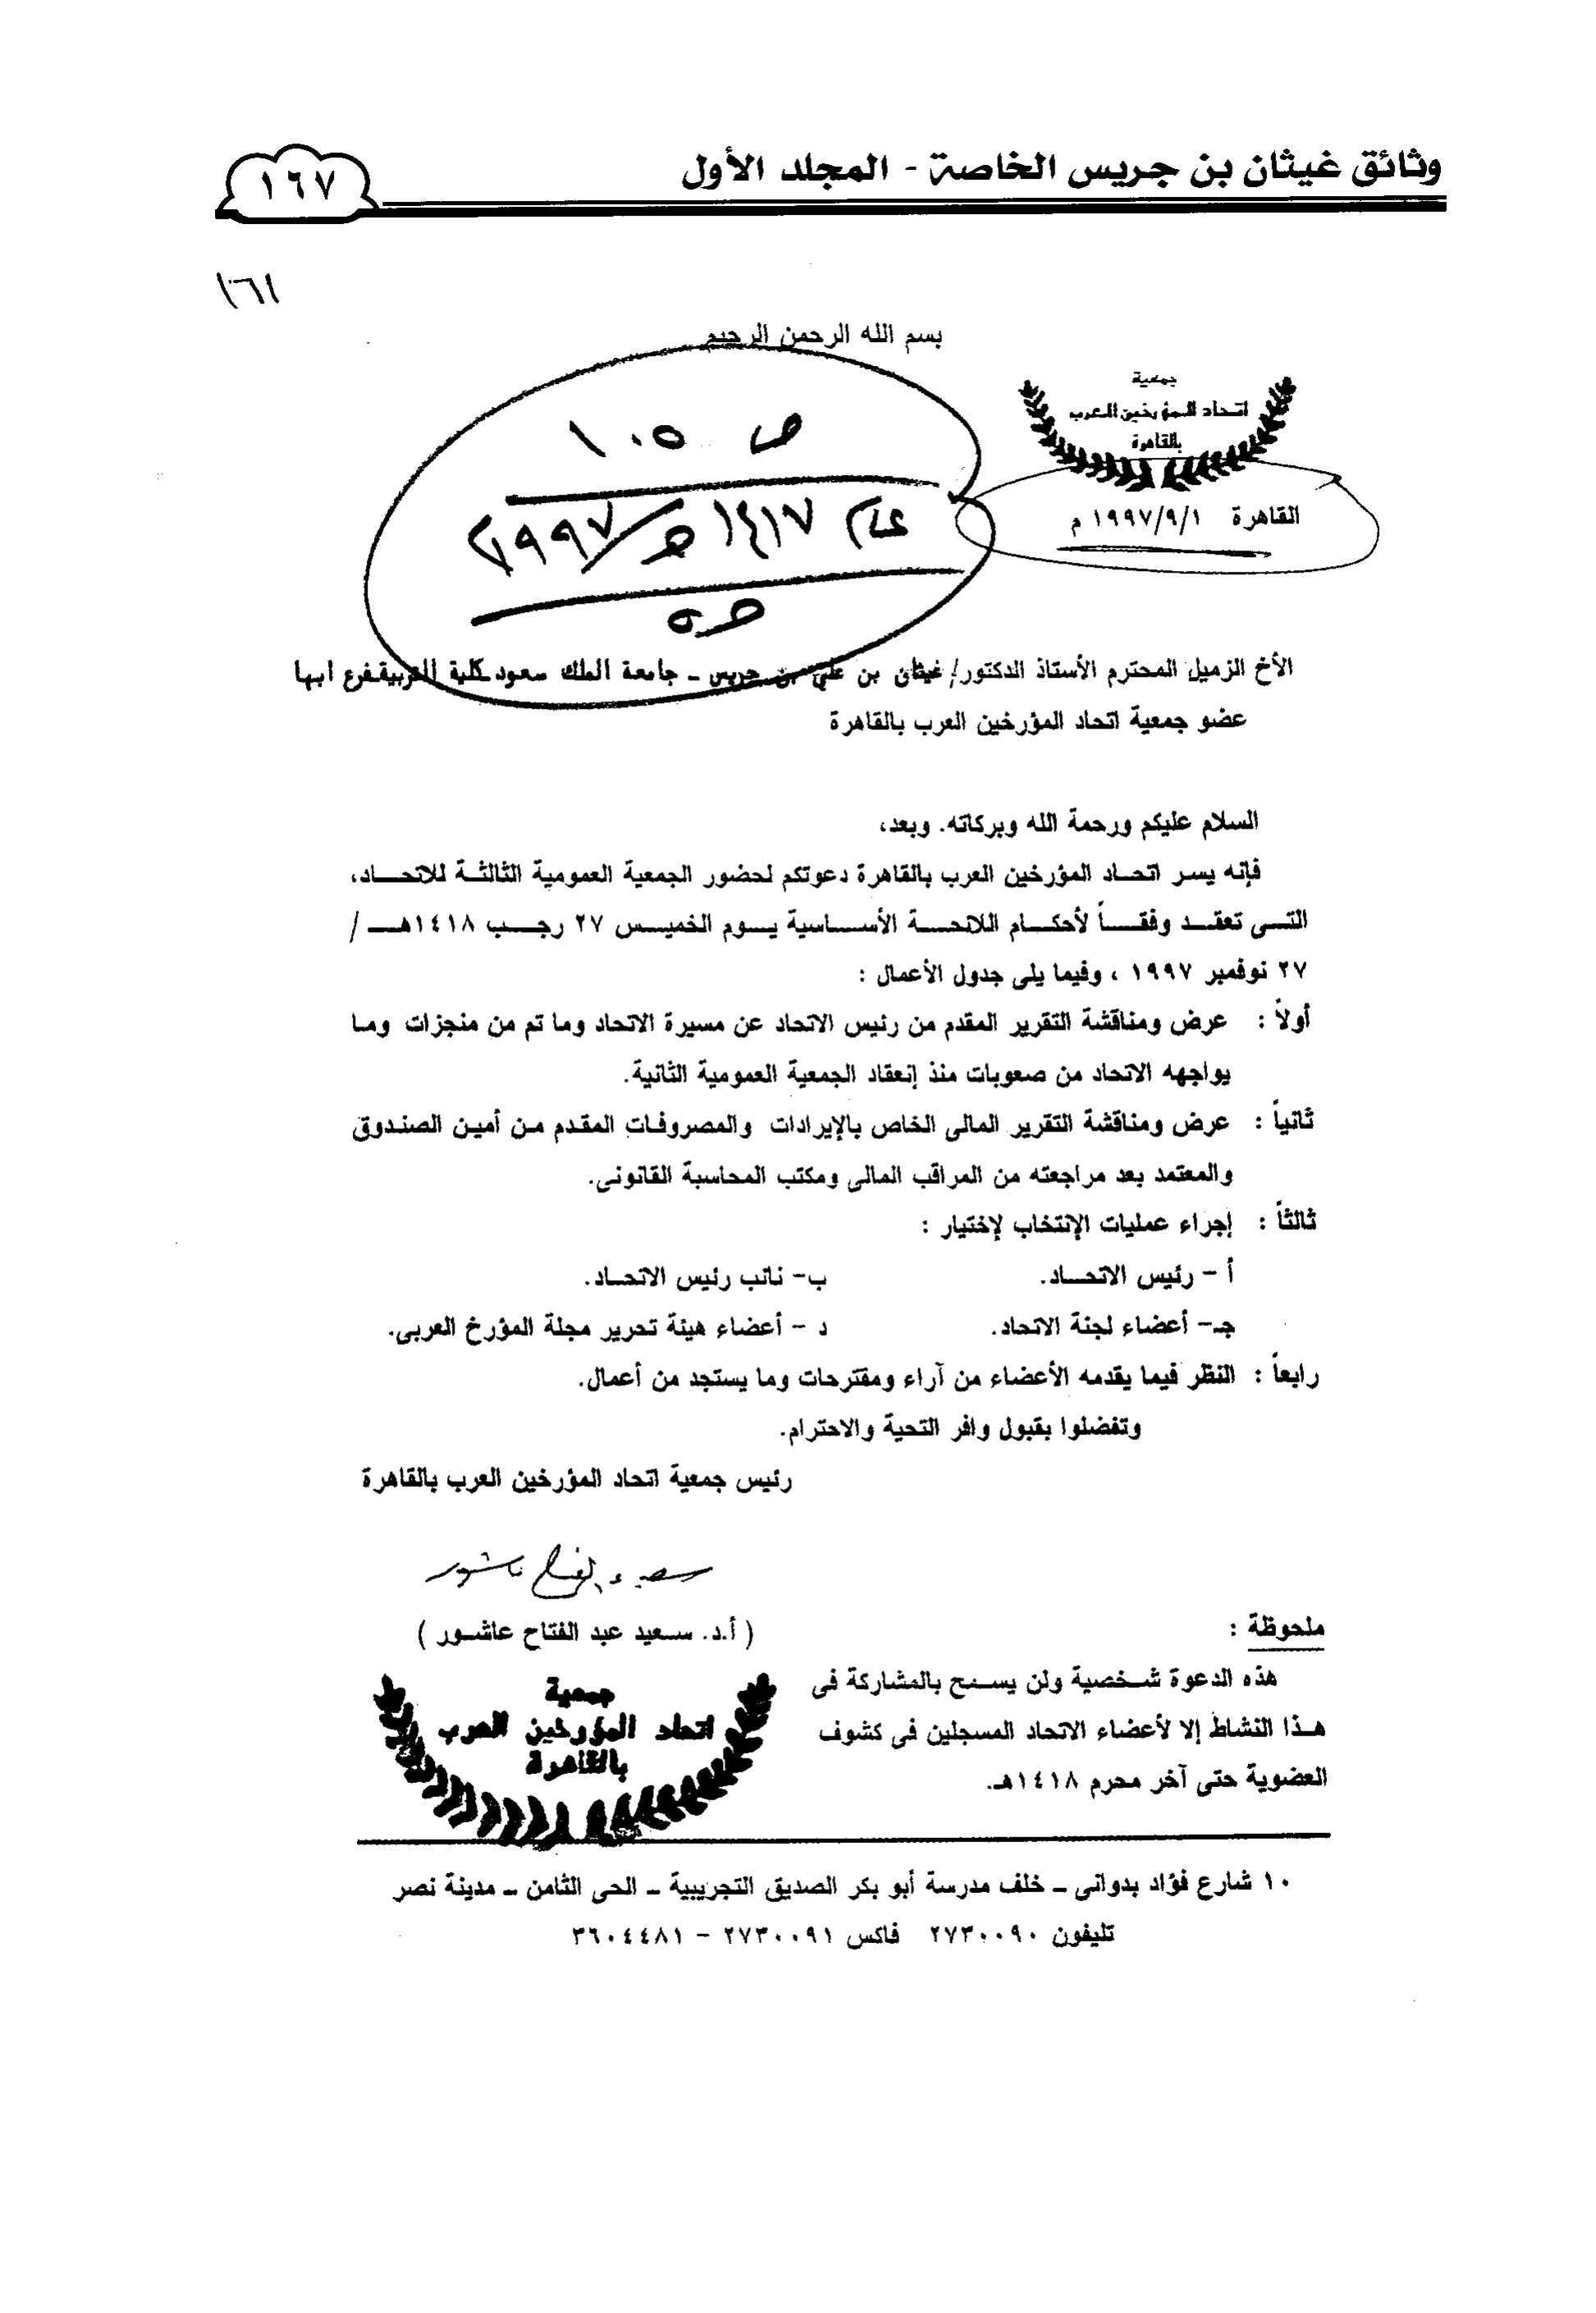 وثائق غيثان بن جريس الخاصة - المجلد الأول
١٦٧
١٦١
بسم الله الرحمن الرحيم
جمعية
اتحاد المؤرخين العرب
بالقاهرة
القاهرة ١٩٩٧/٩/١ م
ص ١٠٥
عام ١٤١٧هـ/١٩٩٧م
الأخ الزميل المحترم الأستاذ الدكتور/ غيثان بن علي بن جريس ــ جامعة الملك سعود ـ كلية التربية ـ فرع ابها
عضو جمعية اتحاد المؤرخين العرب بالقاهرة
السلام عليكم ورحمة الله وبركاته. وبعد،
فإنه يسر اتحاد المؤرخين العرب بالقاهرة دعوتكم لحضور الجمعية العمومية الثالثة للاتحاد،
التى تعقد وفقاً لأحكام اللائحة الأساسية يوم الخميس ٢٧ رجب ١٤١٨هـ /
٢٧ نوفمبر ١٩٩٧ ، وفيما يلى جدول الأعمال :
أولاً : عرض ومناقشة التقرير المقدم من رئيس الاتحاد عن مسيرة الاتحاد وما تم من منجزات وما
يواجهه الاتحاد من صعوبات منذ إنعقاد الجمعية العمومية الثانية.
ثانياً : عرض ومناقشة التقرير المالى الخاص بالإيرادات والمصروفات المقدم من أمين الصندوق
والمعتمد بعد مراجعته من المراقب المالى ومكتب المحاسبة القانونى.
ثالثاً : إجراء عمليات الإنتخاب لإختيار :
أ - رئيس الاتحاد. ب- نائب رئيس الاتحاد.
جـ- أعضاء لجنة الاتحاد. د - أعضاء هيئة تحرير مجلة المؤرخ العربى.
رابعاً : النظر فيما يقدمه الأعضاء من آراء ومقترحات وما يستجد من أعمال.
وتفضلوا بقبول وافر التحية والاحترام.
رئيس جمعية اتحاد المؤرخين العرب بالقاهرة
سعيد عبد الفتاح عاشور
( أ.د. سعيد عبد الفتاح عاشور )
جمعية
اتحاد المؤرخين العرب
بالقاهرة
ملحوظة :
هذه الدعوة شخصية ولن يسمح بالمشاركة فى
هذا النشاط إلا لأعضاء الاتحاد المسجلين فى كشوف
العضوية حتى آخر محرم ١٤١٨هـ.
١٠ شارع فؤاد بدوانى ــ خلف مدرسة أبو بكر الصديق التجريبية ــ الحى الثامن ــ مدينة نصر
تليفون ٢٧٣٠٠٩٠ فاكس ٢٧٣٠٠٩١ - ٣٦٠٤٤٨١